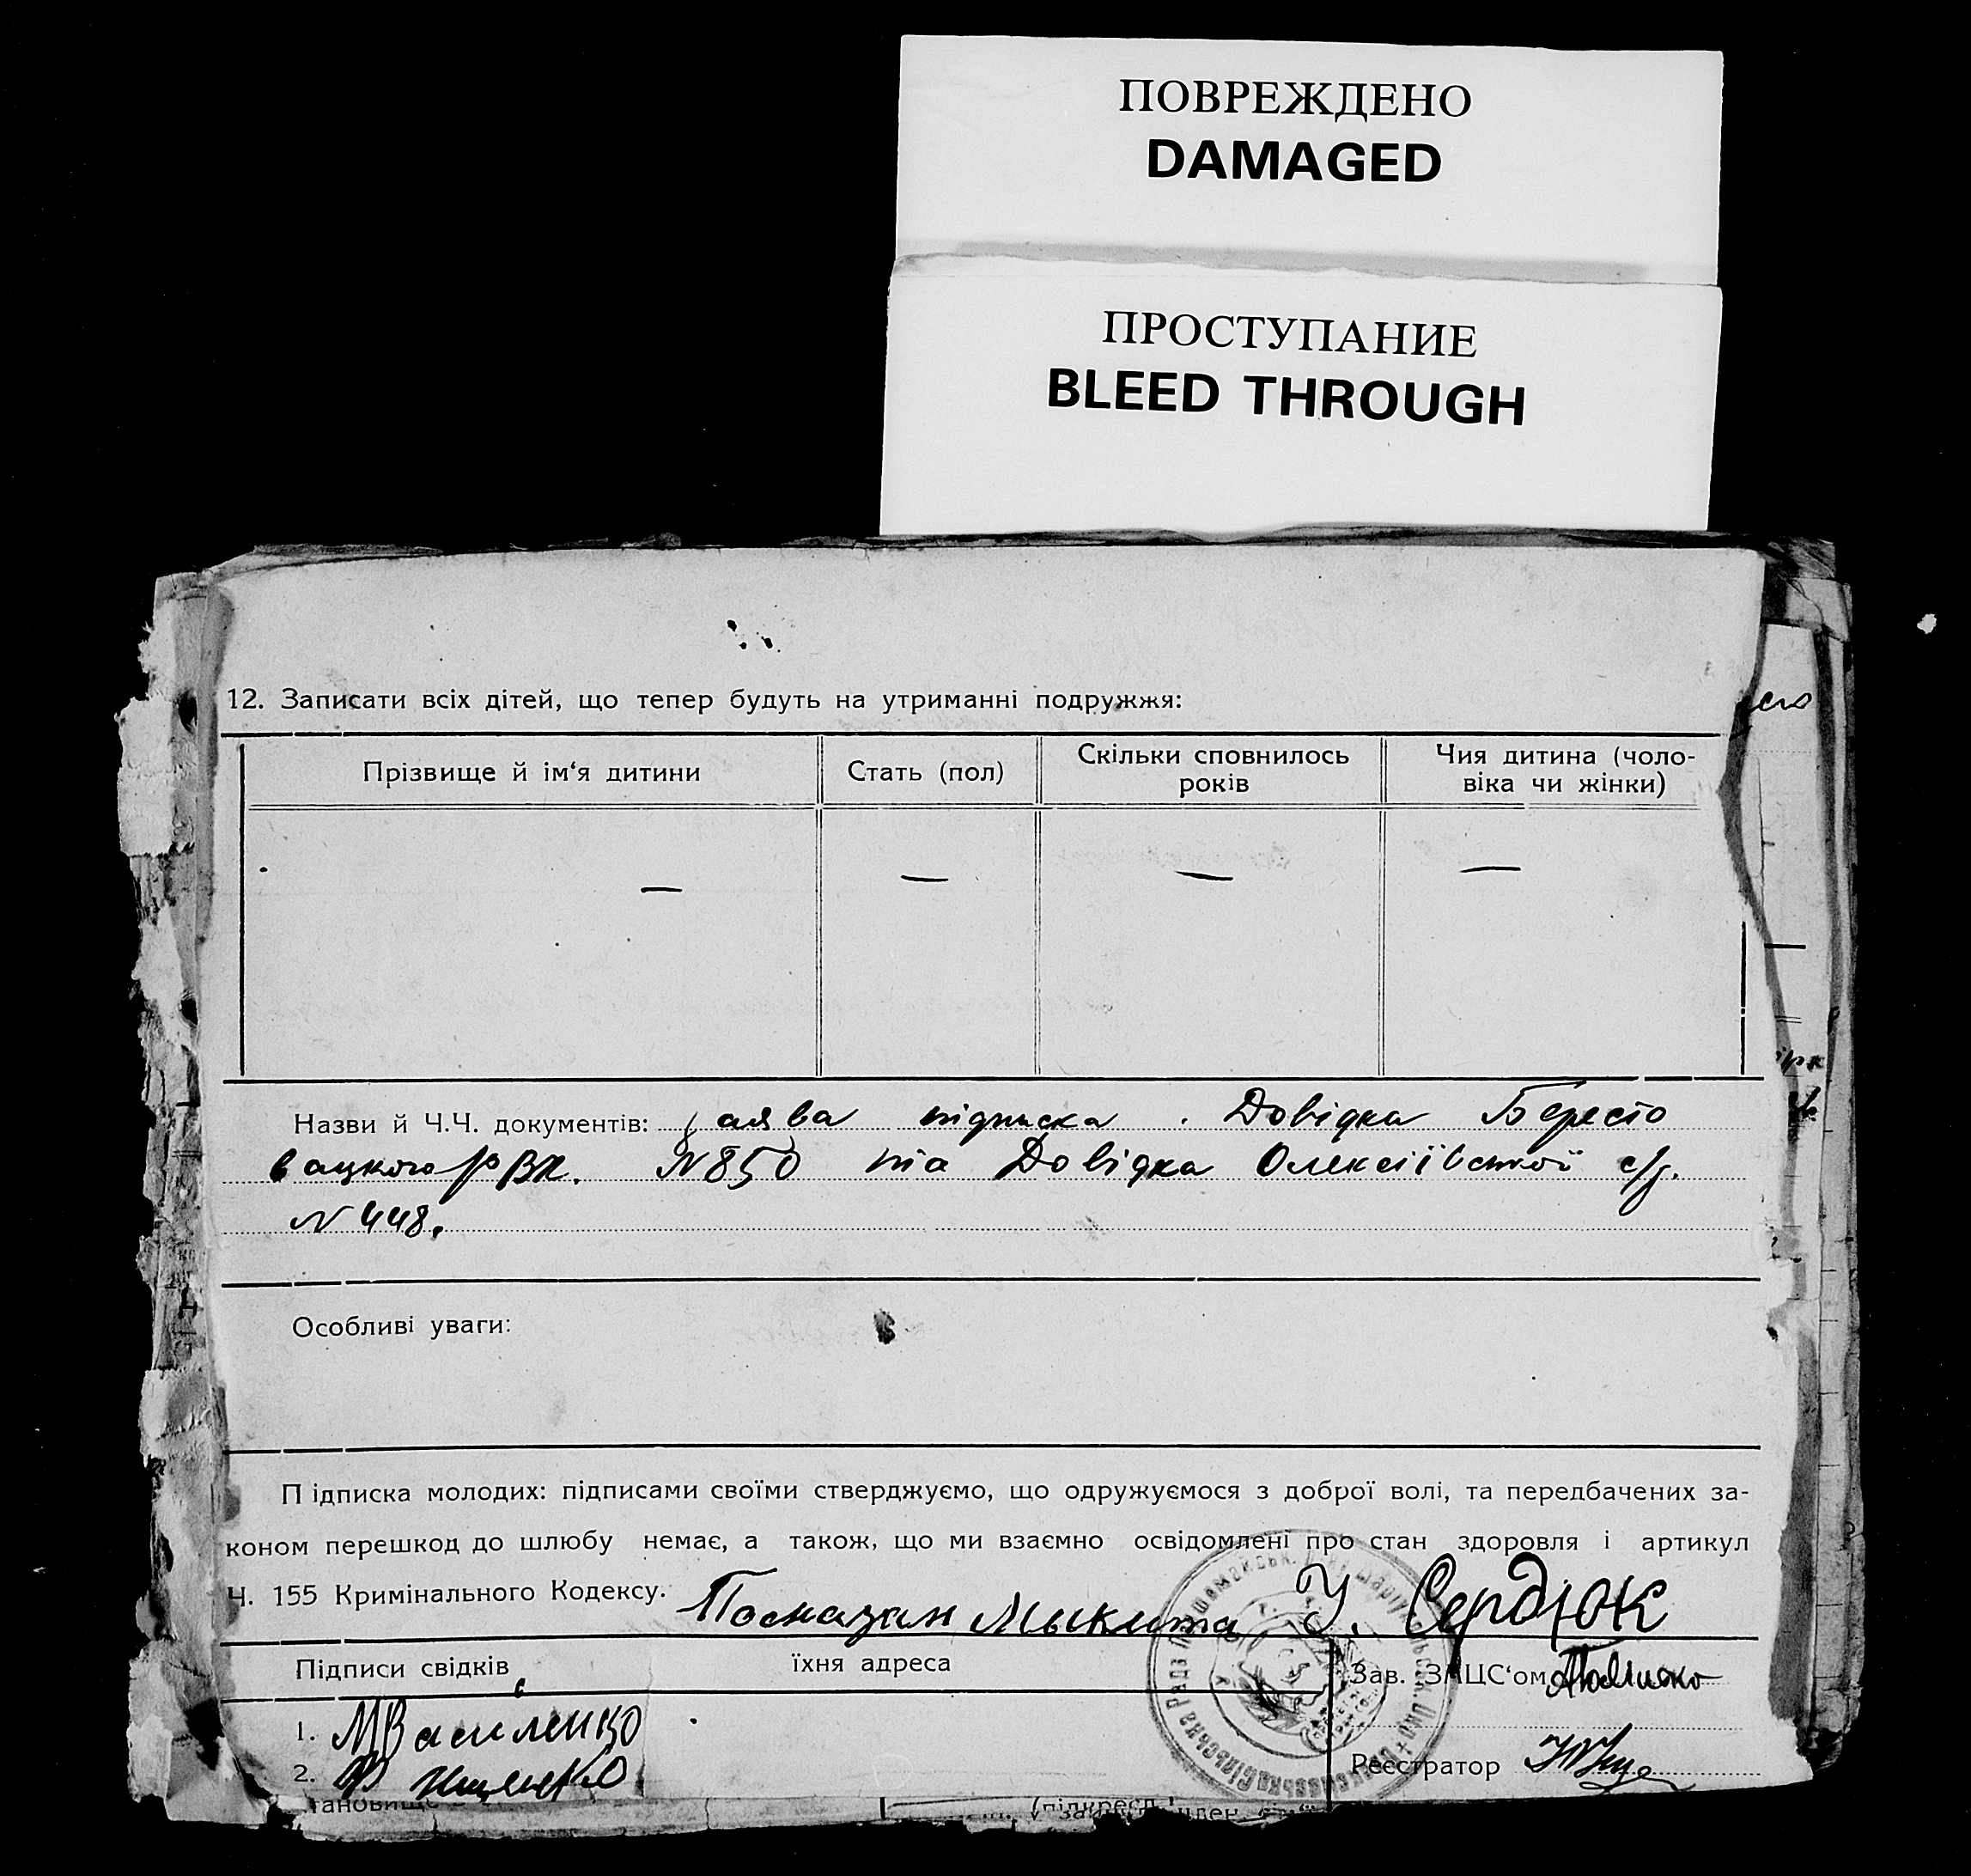 ПОВРЕЖДЕНО
DAMAGED
ПРОСТУПАНИЕ
BLEED THROUGH
12. Записати всіх дітей, що тепер будуть на утриманні подружжя:
Прізвище й ім‘я дитини
Стать (пол)
Скільки сповнилось
років
Чия дитина (чоло-
віка чи жінки)
— — — —
Назви й Ч.Ч. документів: заява підписка. Довідка Бересто
вацкого РВК. N 850 та Довідка Олексіївської с/р.
N 448.
Особливі уваги:
Підписка молодих: підписами своїми стверджуємо, що одружуємося з доброї волі, та передбачених за-
коном перешкод до шлюбу немає, а також, що ми взаємно освідомлені про стан здоровля і артикул
Ч. 155 Кримінального Кодексу. Мыкита У. Сердюк
Підписи свідків
їхня адреса
Зав. ЗАЦС‘ом
1. МВасиленко
2.
Реєстратор